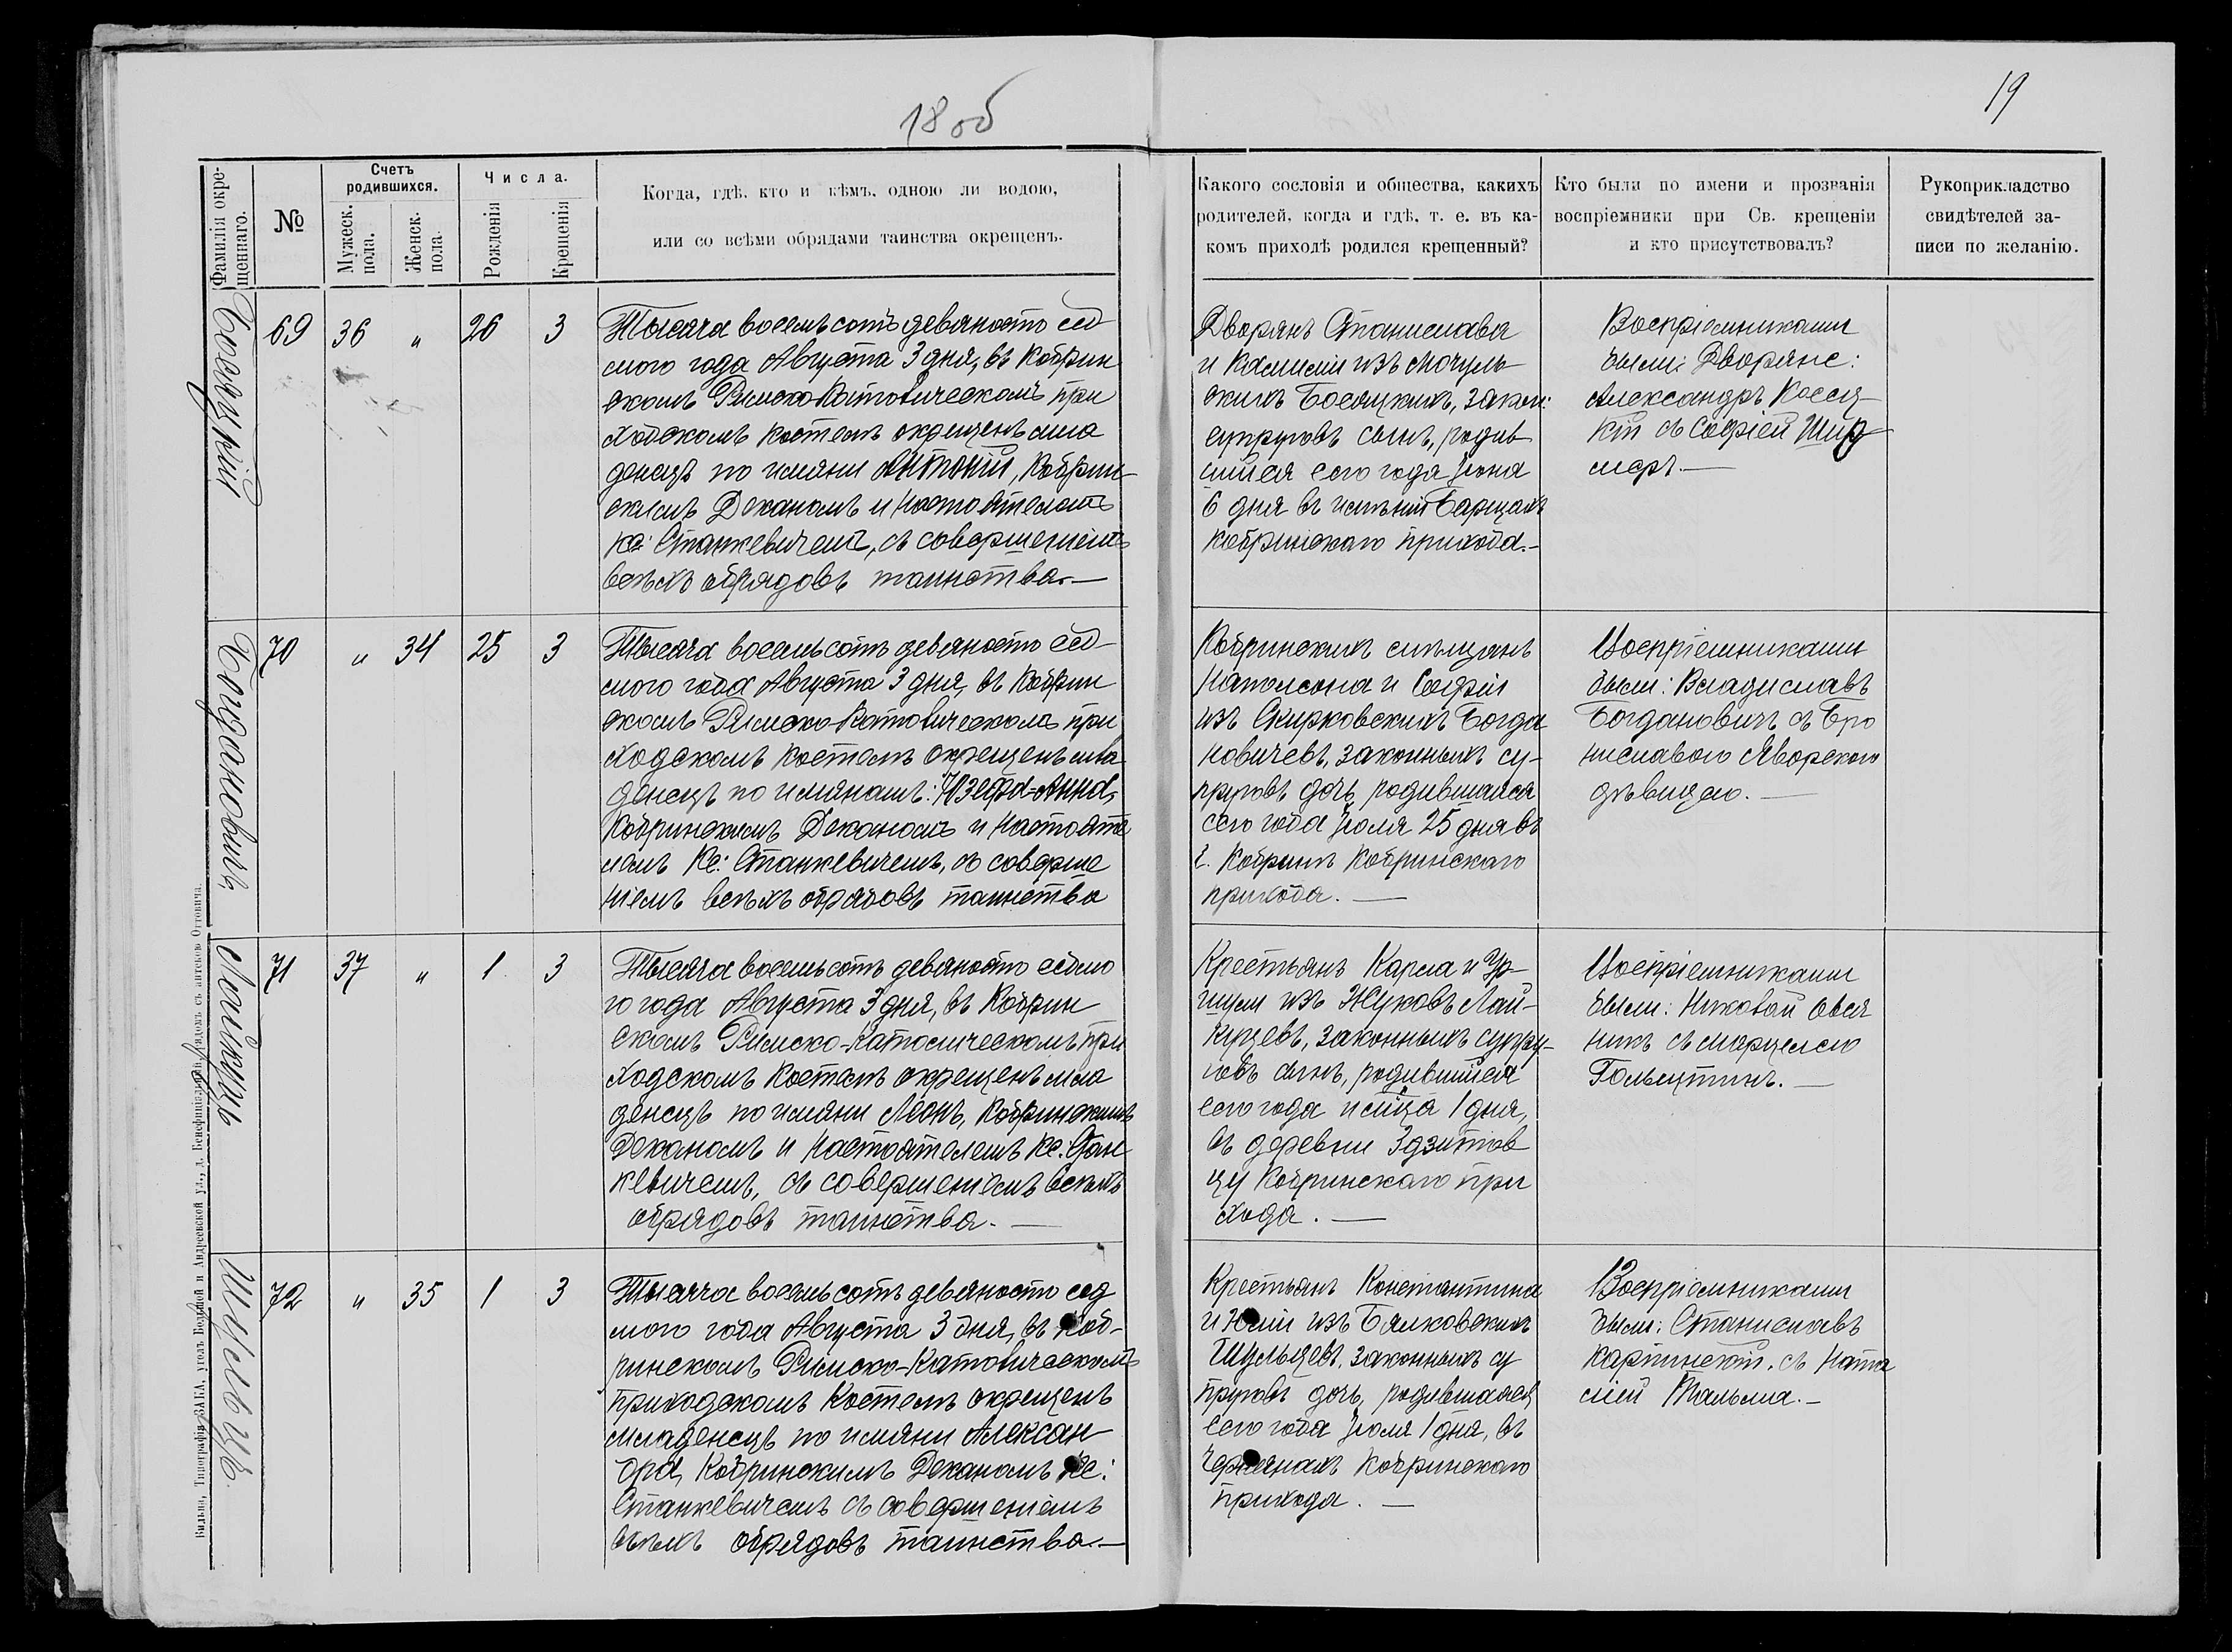 18 об
19
Фамилія окре-
щеннаго.
№
Счетъ
родившихся.
Мужеск.
пола.
Женск.
пола.
Числа.
Рожденія
Крещенія
Когда, гдѣ, кто и кѣмъ, одною ли водою,
или со всѣми обрядами таинства окрещенъ.
Какого сословія и общества, какихъ
родителей, когда и гдѣ, т. е. въ ка-
комъ приходѣ родился крещенный?
Кто были по имени и прозванія
воспріемники при Св. крещеніи
и кто присутствовалъ?
Рукоприкладство
свидѣтелей за-
писи по желанію.
Босяцкій
69 36 „ 26 3
Тысяча восемьсотъ девяносто сед
мого года Августа 3 дня, въ Кобрин
скомъ Римско-Католическомъ при
ходскомъ костелѣ окрещенъ мла
денецъ по имяни Антоній, Кобрин-
скимъ Деканомъ и Настоятелемъ
Кс: Станкевичемъ, съ совершеніемъ
всѣхъ обрядовъ таинства.—
Дворянъ Станислава
и Камиліи изъ Мочуль
скихъ Босяцкихъ, закон:
супруговъ сынъ, родив
шійся сего года Іюня
6 дня въ имѣніи
Кобринскаго прихода.—
Воспріемниками
были: Дворяне:
Александръ
съ Софіей
меръ.—
Богдановичъ
70 „ 34 25 3
Тысяча восемьсотъ девяносто сед-
мого года Августа 3 дня, въ Кобрин
скомъ Римско-Католическомъ при
ходскомъ костелѣ окрещенъ мла
денецъ по имянамъ: Юзефа-Анна,
Кобринскимъ Деканомъ и Настояте
лемъ Кс: Станкевичемъ, съ соверше
ніемъ всѣхъ обрядовъ таинства
Кобринскихъ мѣщанъ
Наполеона и Софіи
изъ Скирковскихъ Богда
новичевъ, законныхъ су-
пруговъ дочь, родившаяся
сего года Іюля 25 дня въ
г. Кобринѣ Кобринскаго
прихода.—
Воспріемниками
были: Владиславъ
Богдановичъ съ Бро
ниславою Яворскою
дѣвицею.—
Лайкуцъ
71 37 „ 1 3
Тысяча восемьсотъ девяносто седмо
го года Августа 3 дня, въ Кобрин
скомъ Римско-Католическомъ при
ходскомъ костелѣ окрещенъ мла
денецъ по имяни Леонъ, Кобринскимъ
Деканомъ и Настоятелемъ Кс. Стан
кевичемъ, съ совершеніемъ всѣхъ
обрядовъ таинства.—
Крестьянъ Карла и Ур-
шули изъ Жуковъ Лай-
куцевъ, законныхъ супру-
говъ сынъ, родившійся
сего года и мѣсца 1 дня,
въ деревни Здзитов
цу Кобринскаго при
хода.—
Воспріемниками
были: Николай Овся
никъ съ Марцелею
Гольцтинъ.—
Шульцъ
72 „ 35 1 3
Тысяча восемьсотъ девяносто сед
мого года Августа 3 дня, въ Коб-
ринскомъ Римско-Католическомъ
приходскомъ Костелѣ окрещенъ
младенецъ по имяни Алексан
дра, Кобринскимъ Деканомъ Кс:
Станкевичемъ съ совершеніемъ
всѣхъ обрядовъ таинства.—
Крестьянъ Константина
и Юліи изъ Бялковскихъ
Шульцевъ, законныхъ су
пруговъ дочь, родившаяся
сего года Іюля 1 дня, въ
Кобринскаго
прихода.—
Воспріемниками
были: Станиславъ
Карпинскій, съ Ната
ліей Тальма.—
Вильна, Типографія ЗАКА, уголъ Большой и Андреевской ул., д. Бенефиціаловъ, рядомъ съ аптекою Оттовича.